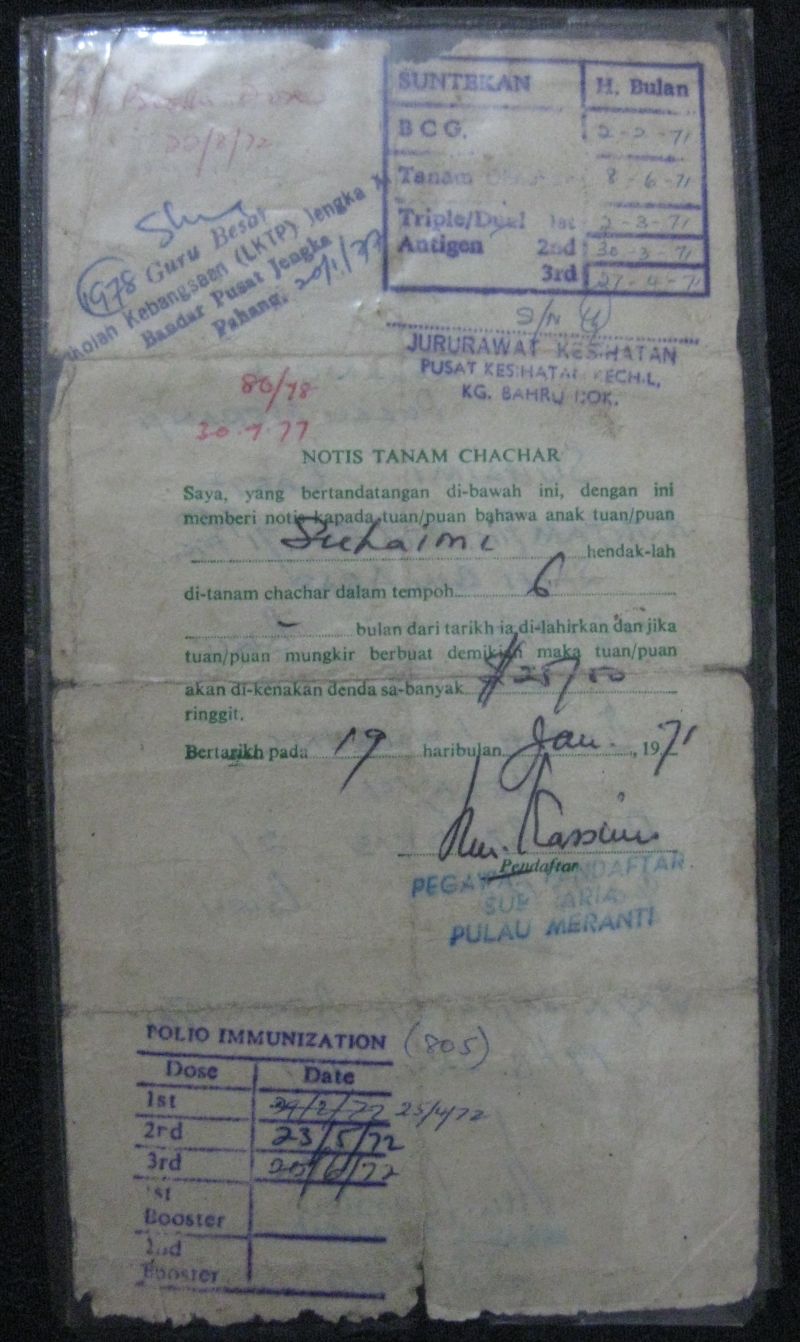 Dose
20/8/72
SUNTEKAN H. Bulan
B C G. 2-2-71
Tanam 8-6-71
Triple/Dual 1st 2-3-71
Antigen 2nd 30-3-71
3rd 27-4-71
1978 Guru Besar
Kebangsaan (LKTP) Jengka
Bandar Pusat Jengka
Pahang. 20/1/77
S/N
JURURAWAT KESIHATAN
PUSAT KESIHATAN KECHIL,
KG. BAHRU
80/78
NOTIS TANAM CHACHAR
Saya, yang bertandatangan di-bawah ini, dengan ini
memberi notis kapada tuan/puan bahawa anak tuan/puan
Suhaimi hendak-lah
di-tanam chachar dalam tempoh 6
- bulan dari tarikh ia di-lahirkan dan jika
tuan/puan mungkir berbuat demikian maka tuan/puan
akan di-kenakan denda sa-banyak $25/50
ringgit.
Bertarikh pada 19 haribulan Jan. , 1971
Kassim
Pendaftar
PEGAWAI PENDAFTAR
PULAU MERANTI
POLIO IMMUNIZATION (805)
Dose Date
1st 25/4/72
2rd 23/5/72
3rd 20/6/72
1st
Booster
2nd
Booster